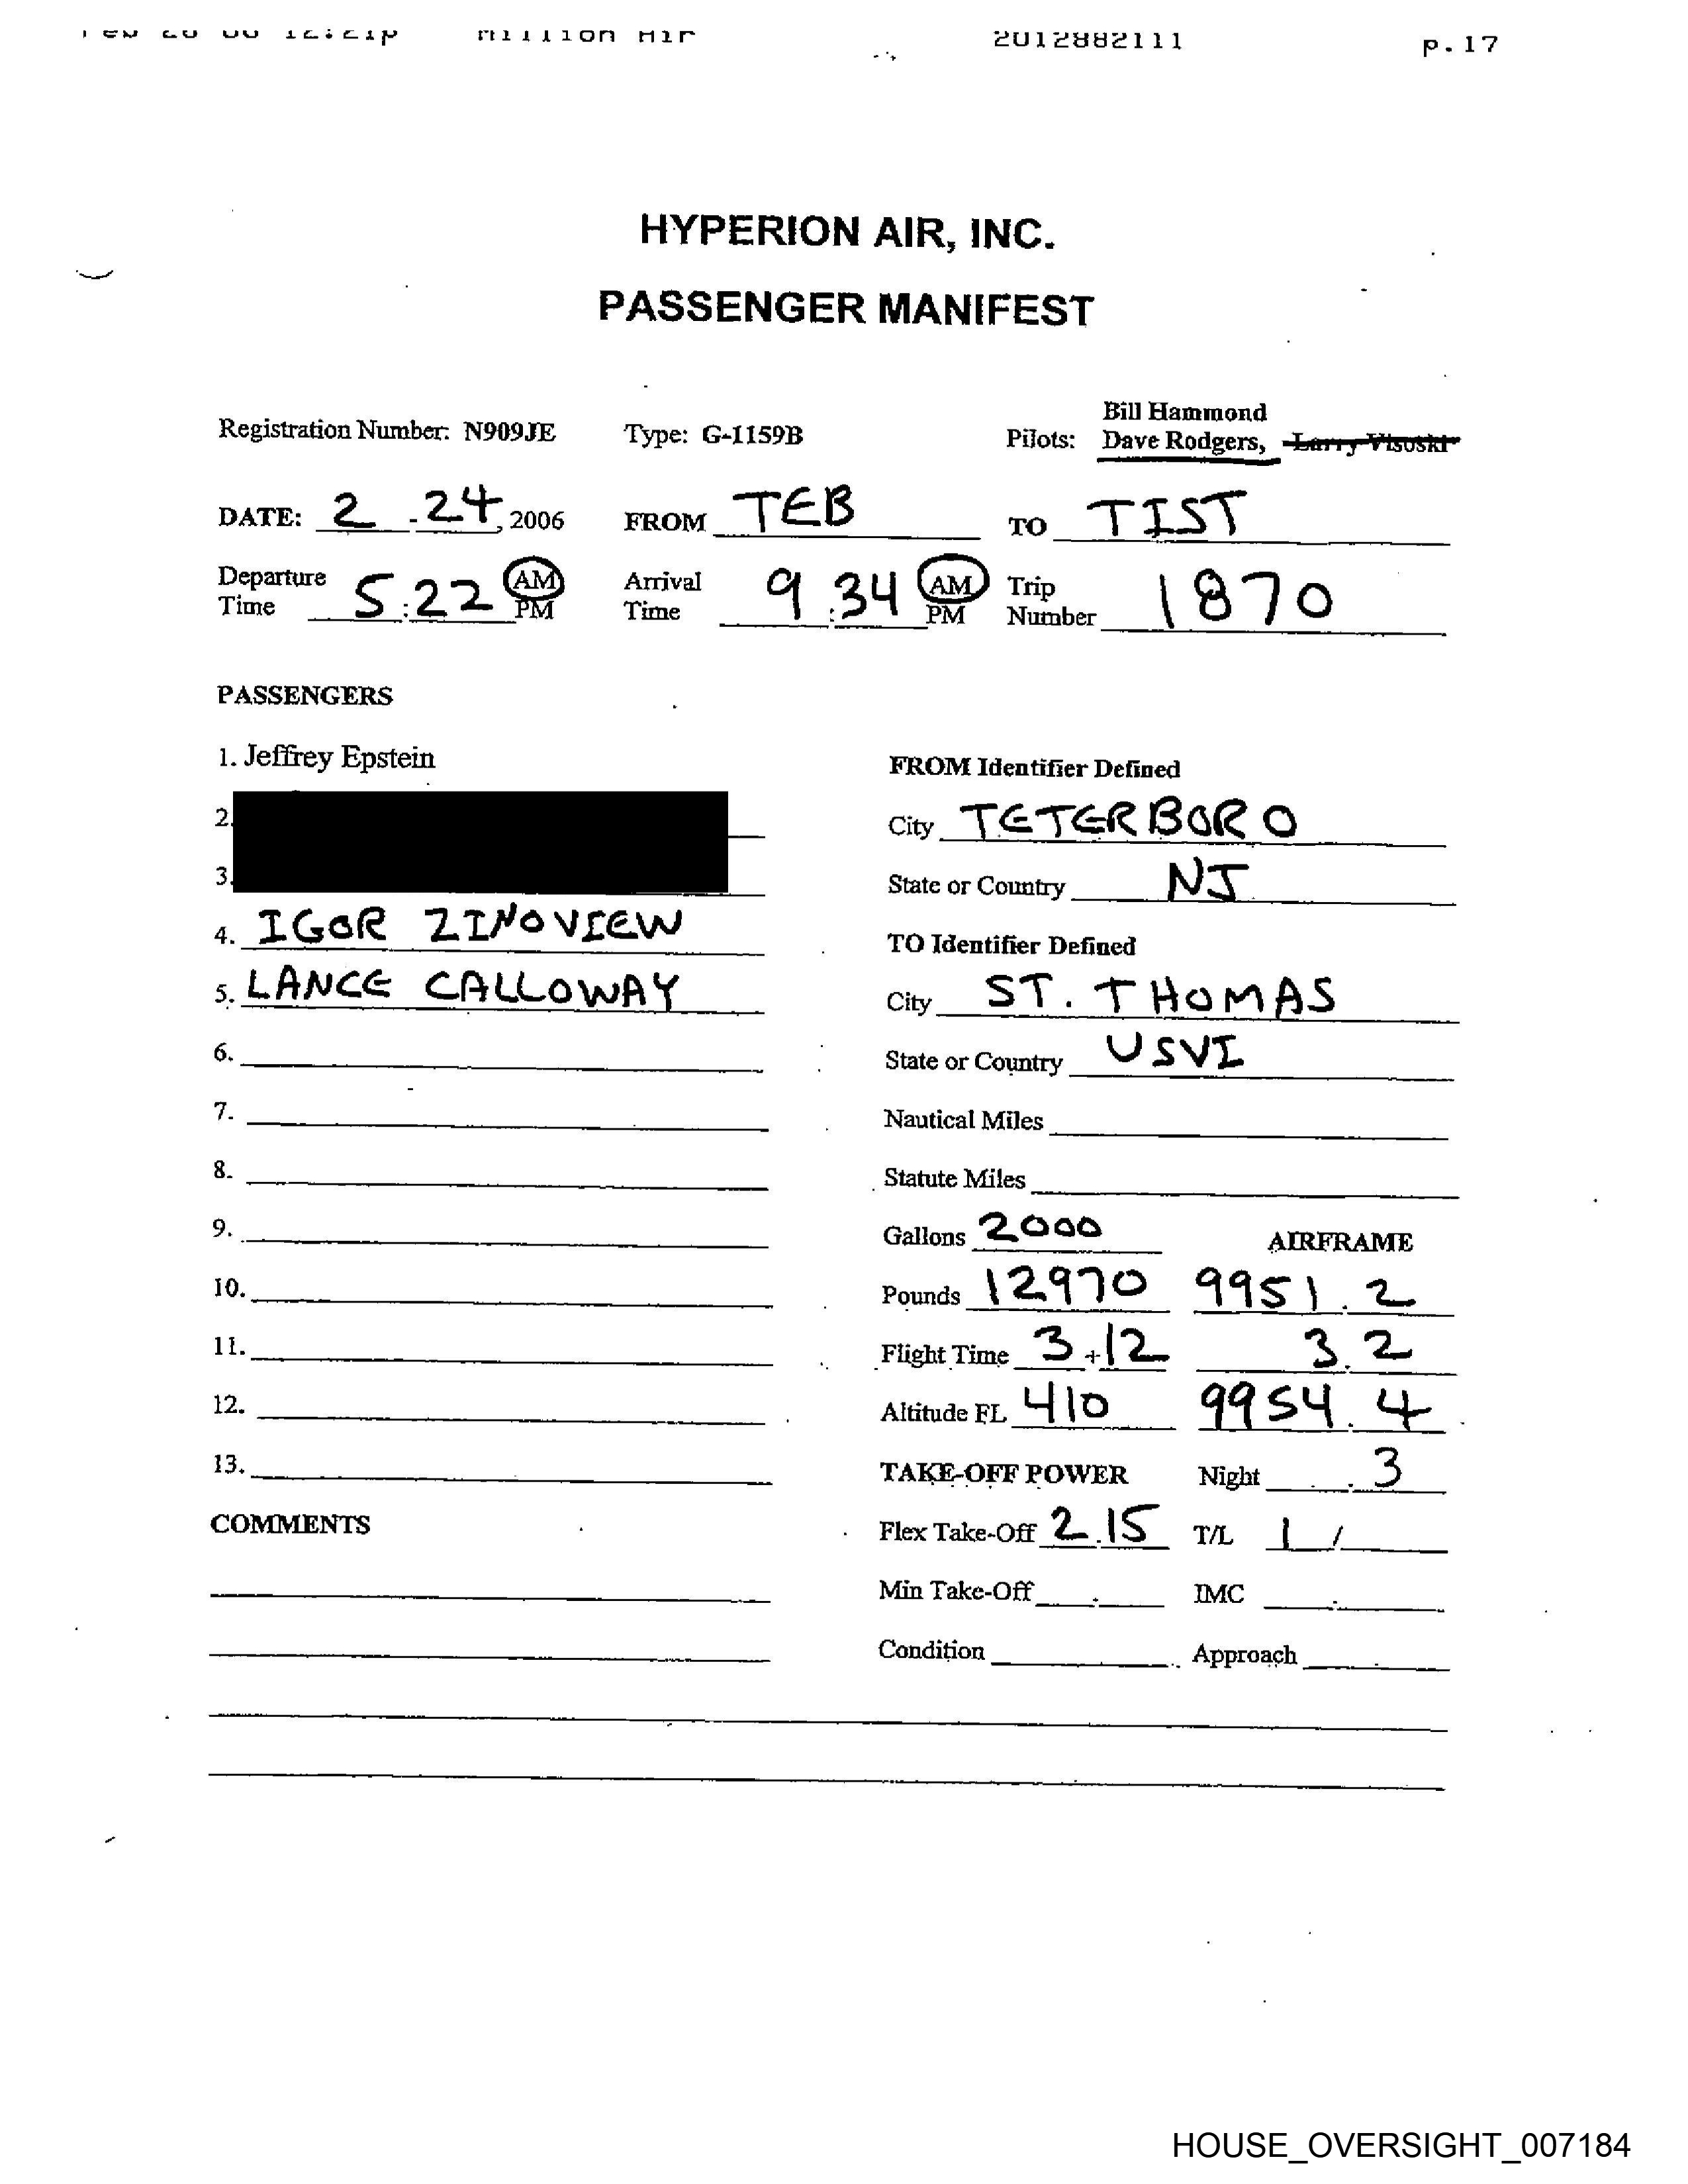 12:21p Million Air 2012882111 p.17
HYPERION AIR, INC.
PASSENGER MANIFEST
Bill Hammond
Registration Number: N909JE Type: G-1159B Pilots: Dave Rodgers, Larry Visoski
DATE: 2 . 24, 2006 FROM TEB TO TIST
Departure Time 5:22 AM PM Arrival Time 9:34 AM PM Trip Number 1870
PASSENGERS
1. Jeffrey Epstein
2.
3.
4. IGOR ZINOVIEW
5. LANCE CALLOWAY
6.
7.
8.
9.
10.
11.
12.
13.
COMMENTS
FROM Identifier Defined
City TETERBORO
State or Country NJ
TO Identifier Defined
City ST. THOMAS
State or Country USVI
Nautical Miles
Statute Miles
Gallons 2000 AIRFRAME
Pounds 12970 9951.2
Flight Time 3+12 3.2
Altitude FL 410 9954.4
TAKE-OFF POWER Night .3
Flex Take-Off 2.15 T/L 1 /
Min Take-Off . IMC .
Condition Approach
HOUSE_OVERSIGHT_007184